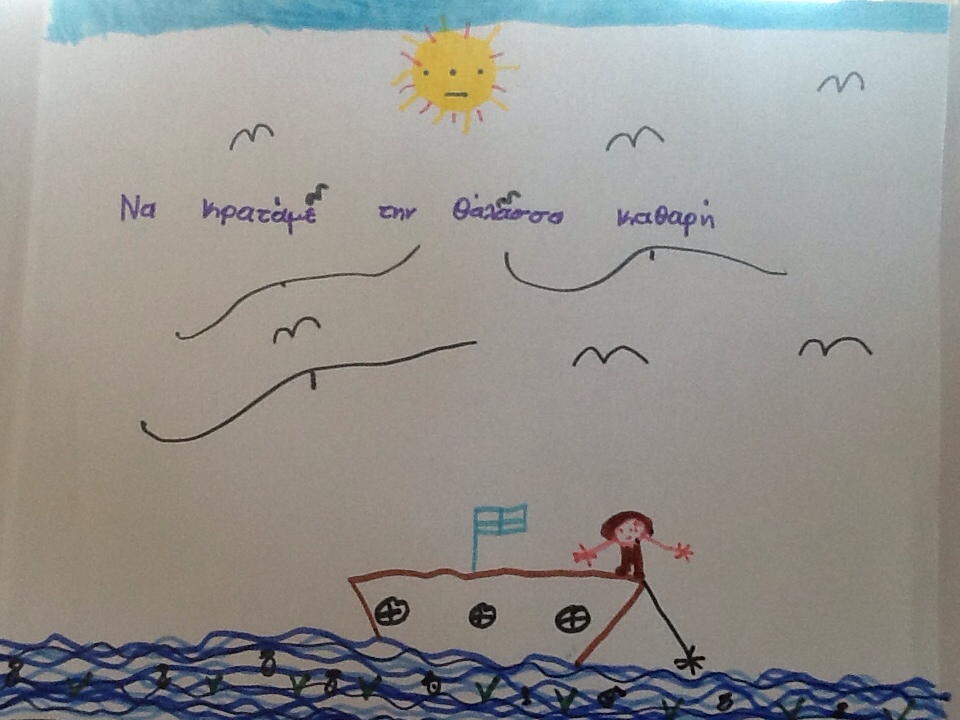 Να κρατάμε την θάλασσα καθαρή